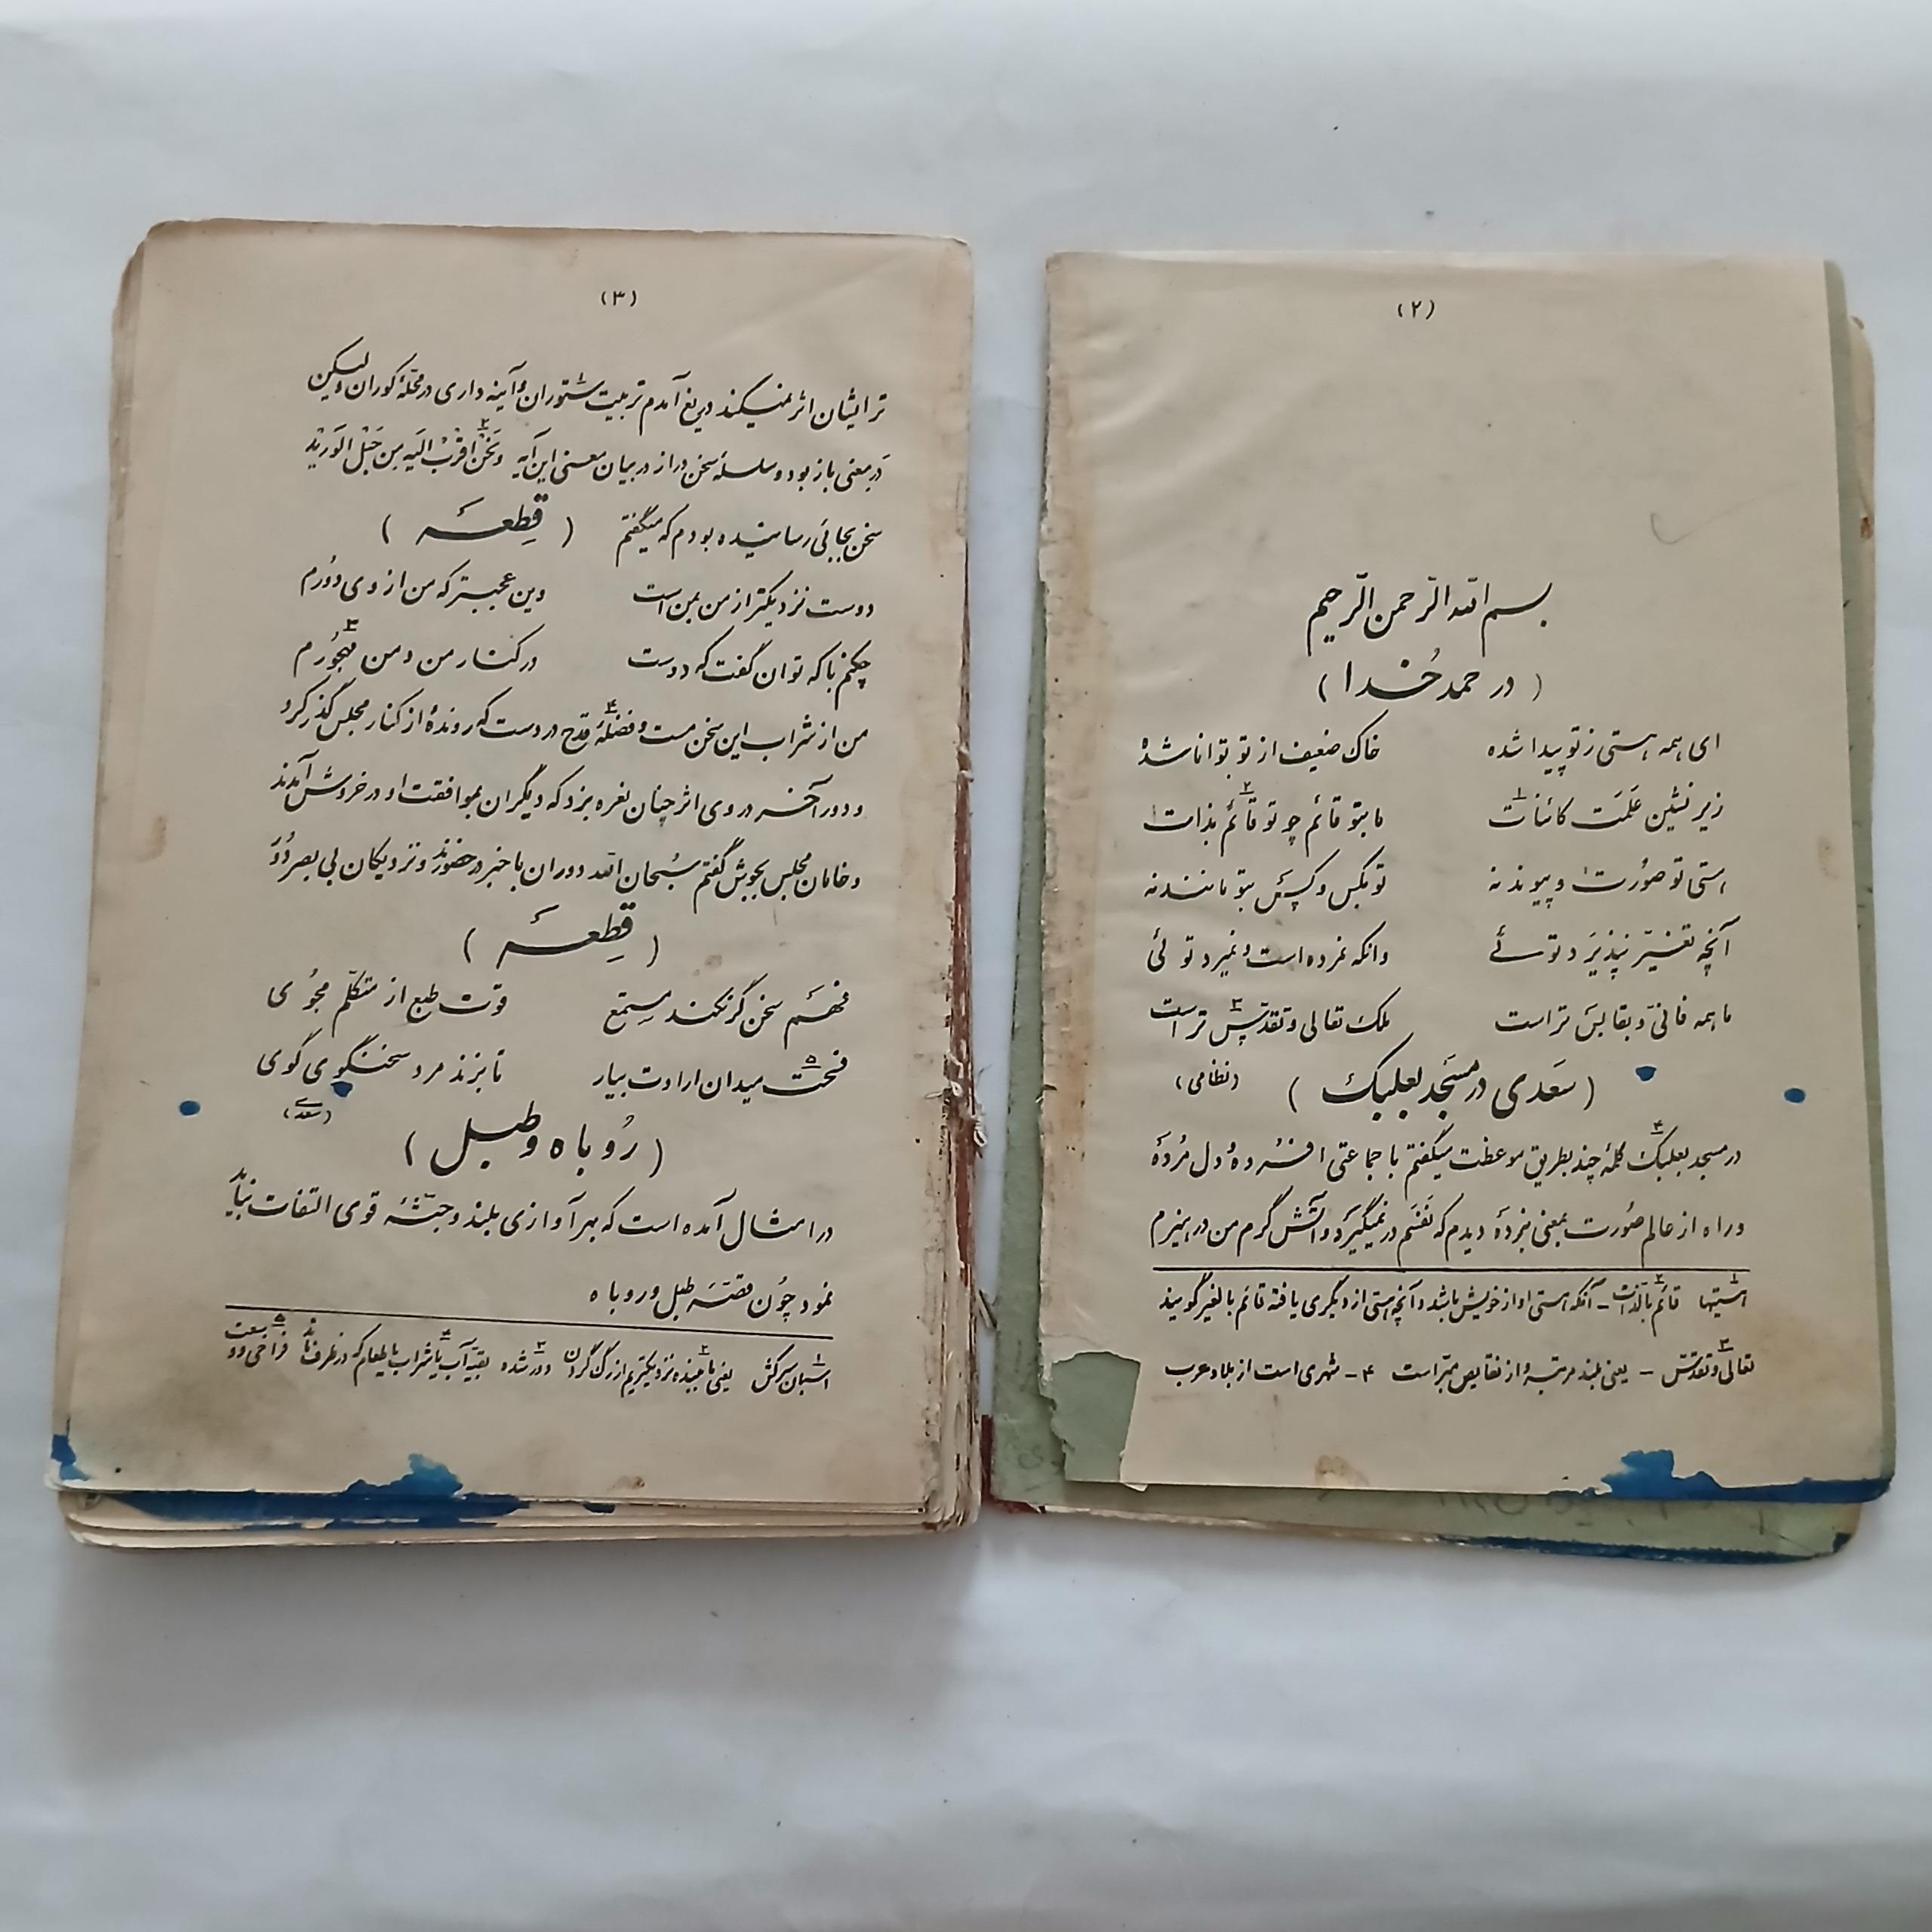 (۲)
بسم الله الرّحمن الرّحیم
(در حمد خُدا)
ای همه هستی ز تو پیدا شده خاک ضعیف از تو توانا شده
زیر نشین عَلَمَت کائنات ما بتو قائم چو تو قائم بذات
هستی تو صُورت و پیوند نه تو بکس و کس بتو مانند نه
آنچه تغیّر نپذیرد توئی وانکه نمرده است و نمیرد توئی
ما همه فانی و بقا بس تراست ملک تعالی و تقدّس تراست
(سعدی در مسجد بعلبک) (نظامی)
در مسجد بعلبک کلمهٔ چند بطریق موعظت میگفتم با جماعتی افسُرده و دل مُرده
و راه از عالم صُورت بمعنی نبرده دیدم که نفسم در نمیگیرد و آتش گرم من در هیزم
۱ هستیها ۲ قائم بالذّات - آنکه هستی او از خویش باشد و آنچه هستی از دیگری یافته قائم بالغیر گویند
۳ تعالی و تقدّس - یعنی بلند مرتبه و از نقایص مبرّاست ۴ - شهری است از بلاد عرب
(۳)
تر ایشان اثر نمیکند دریغ آمدم تربیت ستوران و آینه داری در محلّهٔ کوران ولیکن
در معنی باز بود و سلسلهٔ سخن دراز در بیان معنی این آیه وَنَحْنُ اَقْرَبُ اِلَیهِ مِن حَبْلِ الْوَریْدِ
سخن بجائی رسانیده بودم که میگفتم (قِطعهٔ)
دوست نزدیکتر از من بمن است وین عجبتر که من از وی دُورم
چکنم با که توان گفت که دوست در کنار من و من مهجُورم
من از شراب این سخن مست و فضلهٔ قدح در دست که روندهٔ از کنار مجلس گذر کرد
و دور آخر در وی اثر چنان نعره بزد که دیگران بموافقت او در خروش آمدند
و خامان مجلس بجوش گفتم سُبحان الله دوران با خبر در حضور و نزدیکان بی بصر دُور
(قِطعهٔ)
فهم سخن گر نکند مستمع قوّت طبع از متکلّم مجُوی
فسحت میدان ارادت بیار تا بزند مرد سخنگوی گوی
(سعدی)
(رُوباه و طبل)
در امثال آمده است که بهر آوازی بلند و جثّهٔ قوی التفات نباید
نمود چُون قصّهٔ طبل و روباه
۱ اسبان سرکش ۲ یعنی ما ببنده نزدیکتریم از رگ گردن ۳ دور شده ۴ بقیّه آب یا شراب یا طعام که در ظرف ماند ۵ فراخی و وسعت